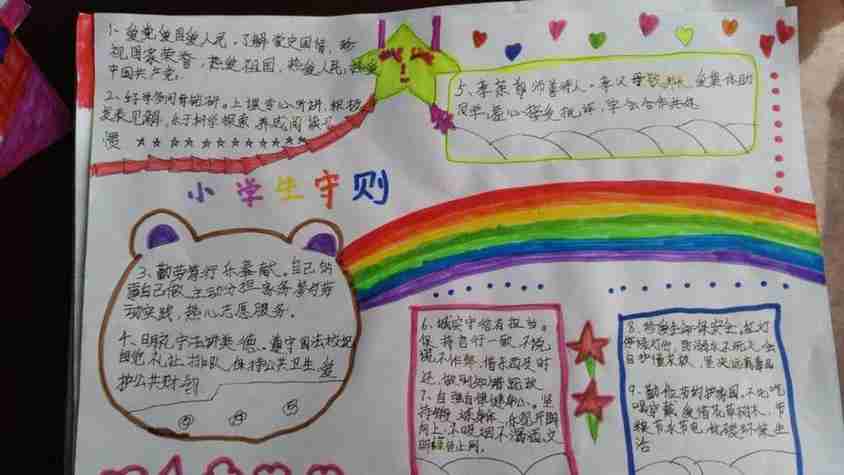 1、爱党爱国爱人民。了解党史国情,珍
视国家荣誉,热爱祖国,热爱人民,热爱
中国共产党。
2、好学多问肯钻研。上课专心听讲,积极
发表见解,乐于科学探索,养成阅读习
惯
小学生守则
3、勤劳笃行乐奉献。自己的
事自己做,主动分担家务,参与劳
动实践,热心志愿服务。
4、明礼守法讲美德。遵守国法校纪
自觉礼让排队,保持公共卫生,爱
护公共财
5、孝亲尊师善待人。孝父母敬师长,爱集体助
同学,虚心接受批评,学会合作共处
6、诚实守信有担当。
保持言行一致,不说
谎不作弊,借东西及时
还,做到知错就改
7、自强自律健身心。坚
持锻炼身体,乐观开朗
向上,不吸烟不喝酒,文
明绿色上网。
8、珍爱生命保安全。红灯
停绿灯行,防溺水不玩火,会
自护懂求救,坚决远离毒品
9、勤俭节约护家园。不比吃
喝穿戴,爱惜花草树木,节
粮节水节电,低碳环保生
活